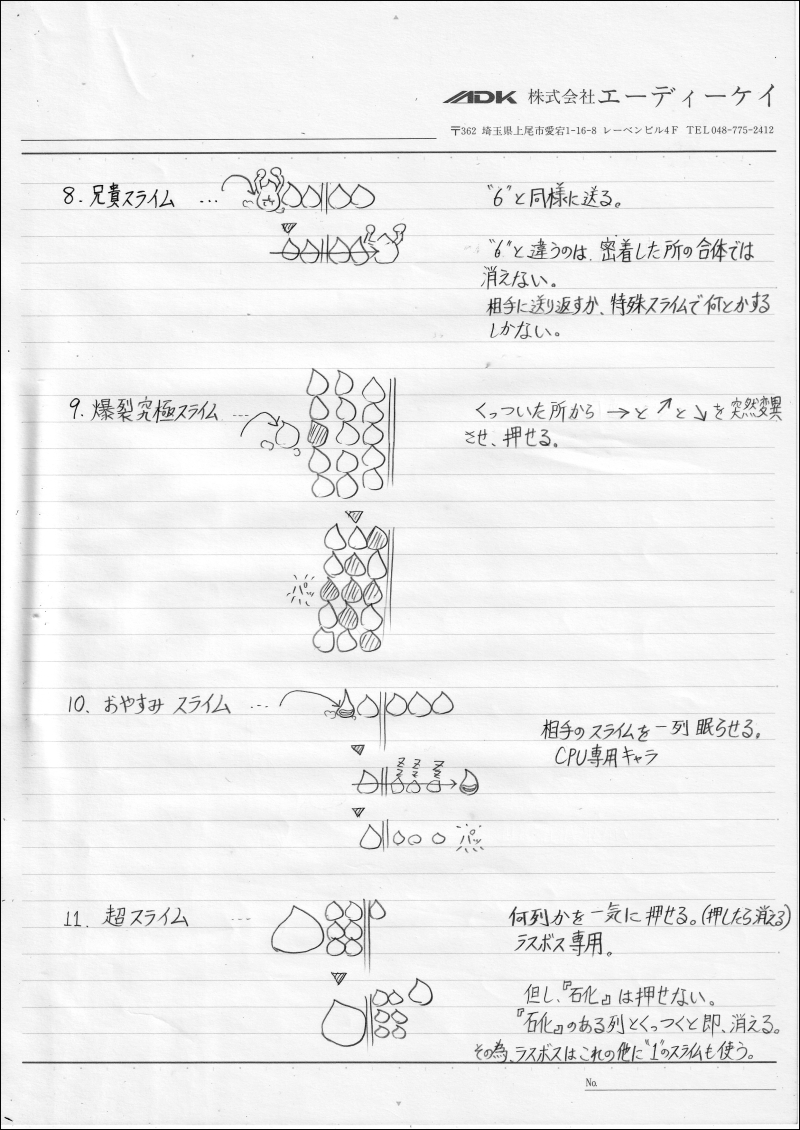 ADK 株式会社エーディーケイ
〒362 埼玉県上尾市愛宕1-16-8 レーベンビル4F TEL048-775-2412
8. 兄貴スライム ...
"6"と同様に送る。
"6"と違うのは、密着した所の合体では
消えない。
相手に送り返すか、特殊スライムで何とかする
しかない。
9. 爆裂究極スライム ...
くっついた所から →と↗と↘を突然変異
させ、押せる。
パッ
10. おやすみ スライム ...
相手のスライムを一列眠らせる。
CPU専用キャラ
Z Z Z
Z Z Z
パッ
11. 超スライム ...
何列かを一気に押せる。(押したら消える)
ラスボス専用。
但し、『石化』は押せない。
『石化』のある列とくっつくと即、消える。
その為、ラスボスはこれの他に"1"のスライムも使う。
No.